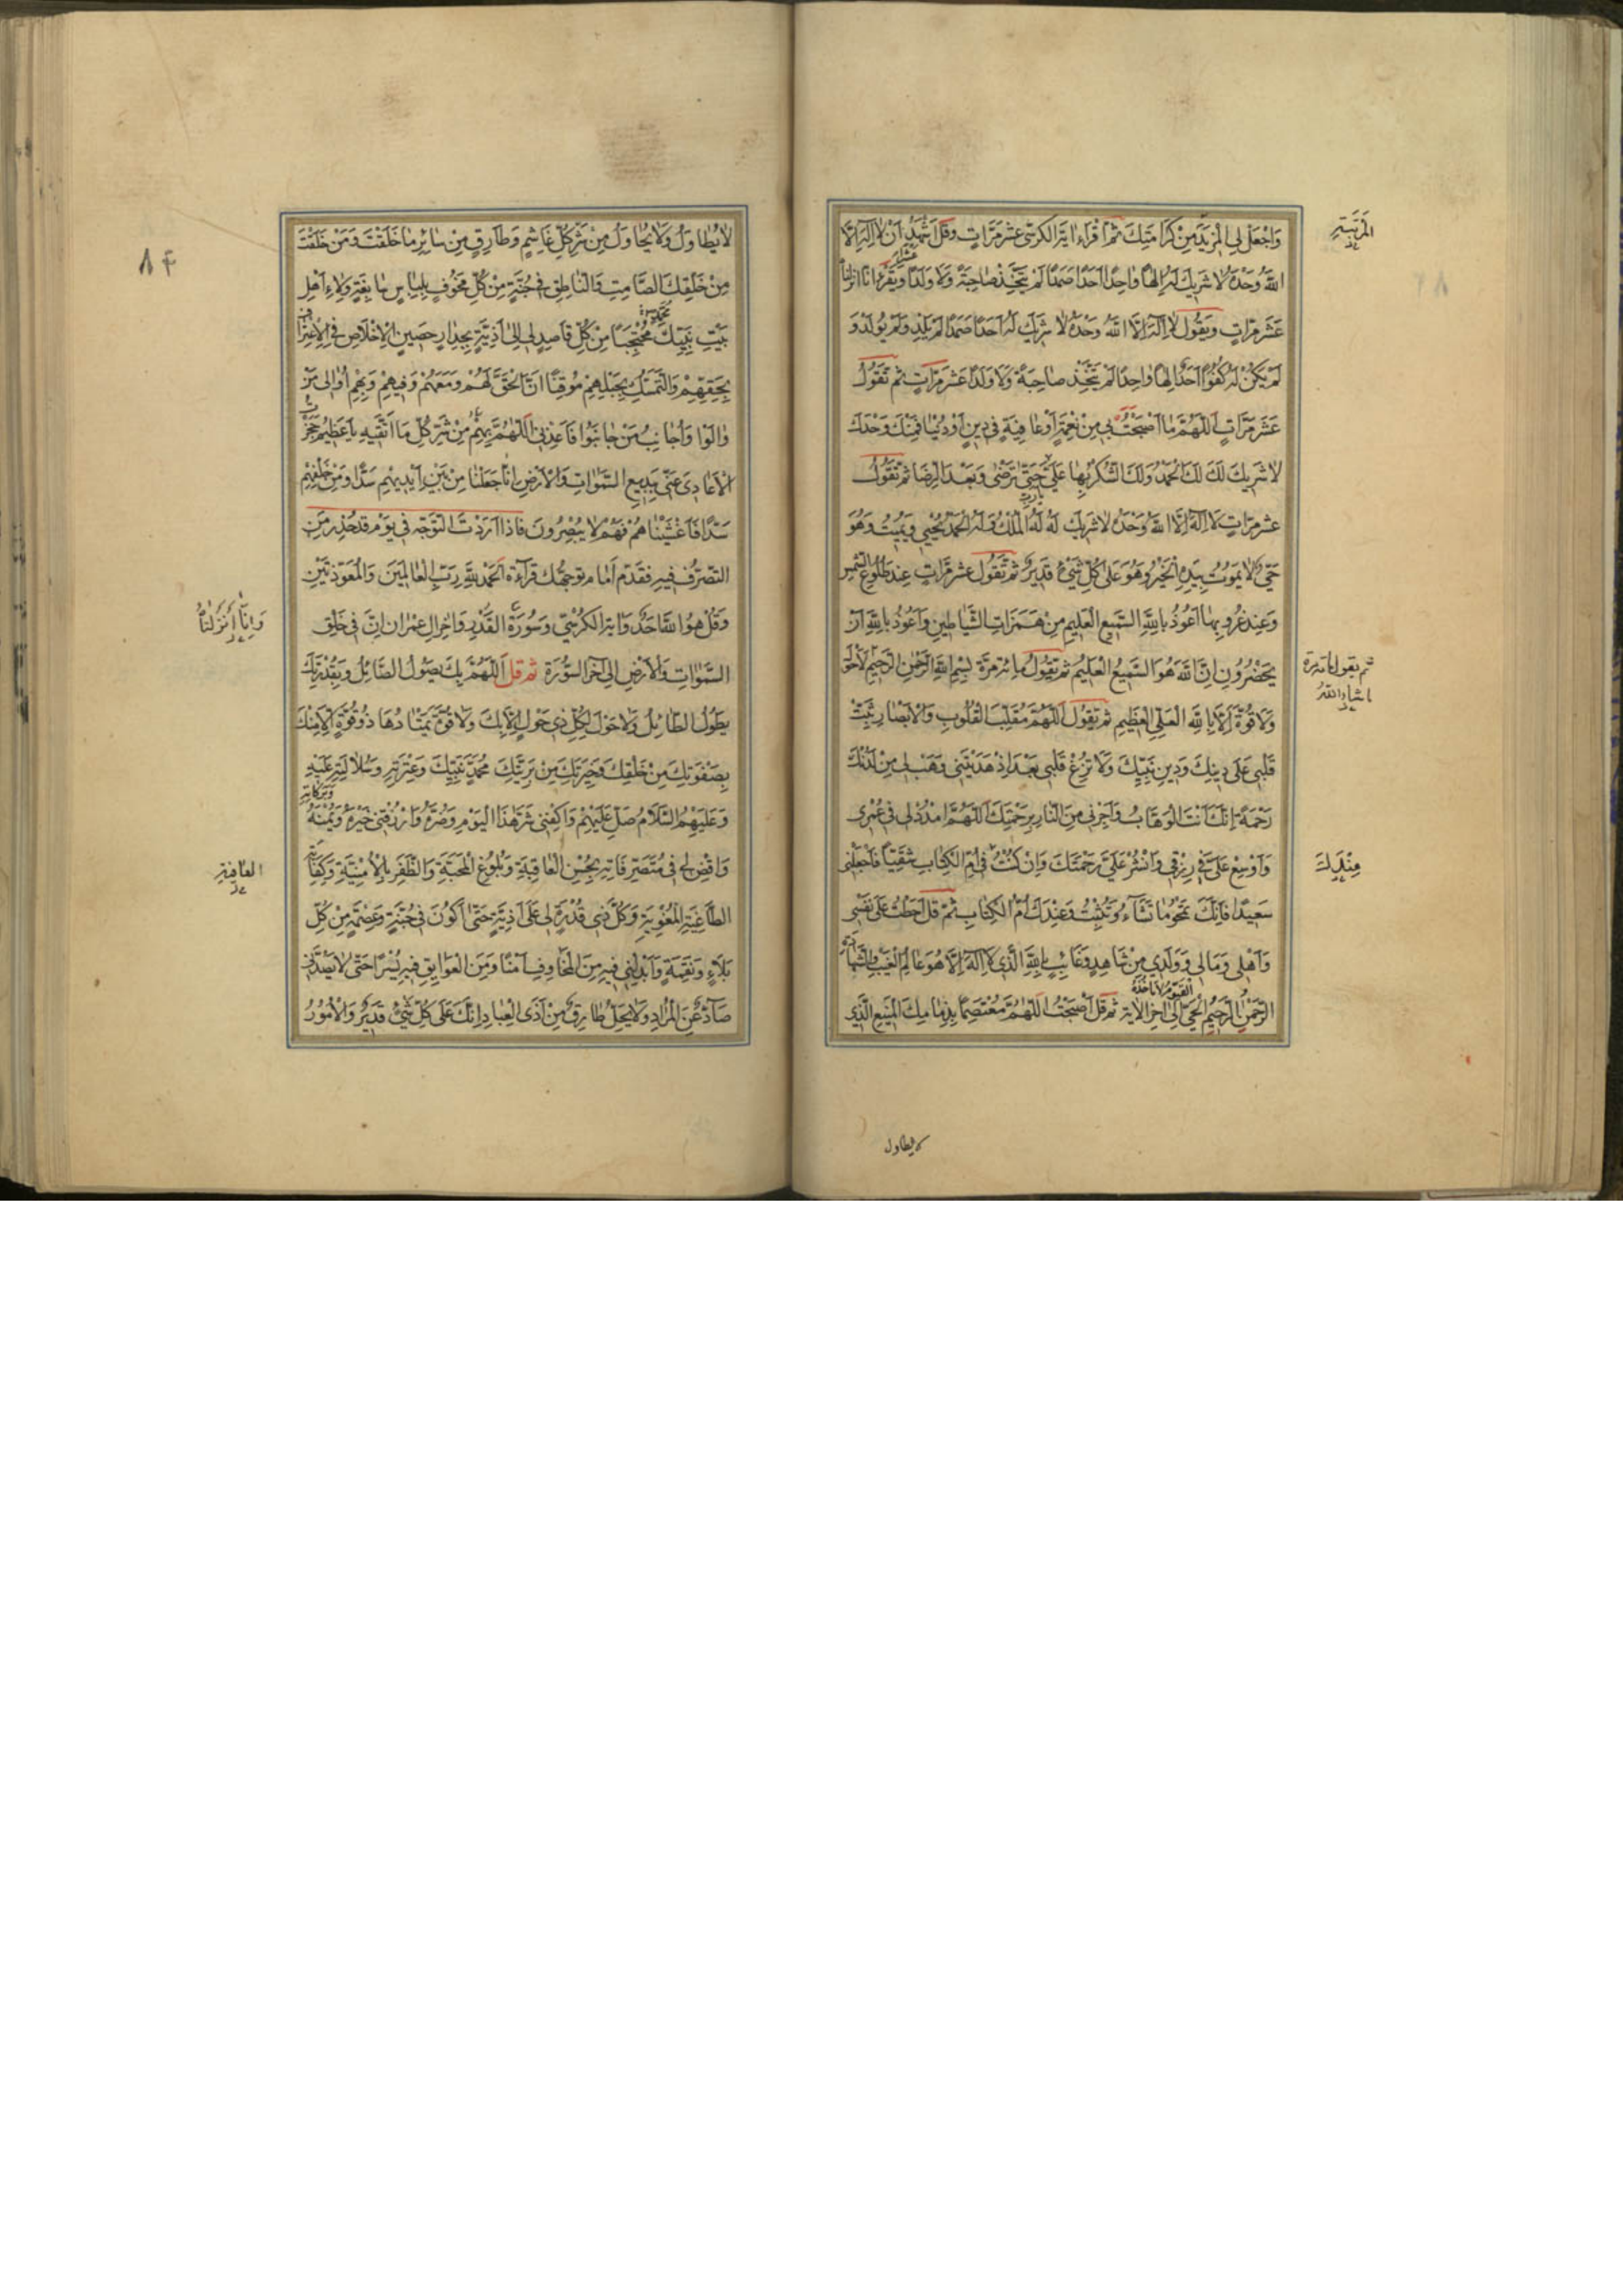 وَاجْعَلْ لِي الْمَزِيدَ مِنْ كَرَامَتِكَ ثُمَّ اقْرَاءْ ايَةَ الكرسيّ عشر مَرَّاتٍ وَقُلْ اَشْهَدُ اَنْ لَا اِلهَ اِلَّا
اللهُ وَحْدَهُ لَا شَرِيكَ لَهُ اِلهًا وَاحِدًا اَحَدًا صَمَدًا لَمْ يَتَّخِذْ صَاحِبَةً وَلَا وَلَدًا وَيَقْرَءُ انا انزلناه
عَشَرَ مَرّاتٍ وَيَقُولُ لَا اِلهَ اِلَّا اللهُ وَحْدَهُ لَا شَرِيكَ لَهُ اَحَدًا صَمَدًا لَمْ يَلِدْ وَلَمْ يُولَدْ وَ
لَمْ يَكُنْ لَهُ كُفُوًا اَحَدٌ اِلهًا وَاحِدًا لَمْ يَتَّخِذْ صَاحِبَةً وَلَا وَلَدًا عَشَرَ مَرَّاتٍ ثُمَّ تَقُولُ
عَشَرَ مَرَّاتٍ اَللّهُمَّ مَا اَصْبَحَتْ بِي مِنْ نِعْمَةٍ اَوْ عَافِيَةٍ فِي دِينٍ اَوْ دُنْيَا فَمِنْكَ وَحْدَكَ
لَا شَرِيكَ لَكَ لَكَ الْحَمْدُ وَلَكَ الشُّكْرُ بِهَا عَلَيَّ يَا رَبِّ حَتَّى تَرْضى وَبَعْدَ الرِّضَا ثُمَّ تَقُولُ
عشر مرّاتٍ لَا اِلهَ اِلَّا اللهُ وَحْدَهُ لَا شَرِيكَ لَهُ لَهُ الْمُلْكُ وَلَهُ الْحَمْدُ يُحْيِي وَيُمِيتُ وَهُوَ
حَيٌّ لَا يَمُوتُ بِيَدِهِ الْخَيْرُ وَهُوَ عَلَى كُلِّ شَيْءٍ قَدِيرٌ ثُمَّ تَقُول عشر مَرَّاتٍ عِنْدَ طُلُوعِ الشَّمْسِ
وَعِنْدَ غُرُوبِهَا اَعُوذُ بِاللهِ السَّمِيعِ الْعَلِيمِ مِنْ هَمَزَاتِ الشَّيَاطِينِ وَاَعُوذُ بِاللهِ اَنْ
يَحْضُرُونِ اِنَّ اللهَ هُوَ السَّمِيعُ الْعَلِيمُ ثُمَّ تَقُولُ مِائَةَ مَرَّةٍ بِسْمِ اللهِ الرَّحْمنِ الرَّحِيمِ لَا حَوْلَ
وَلَا قُوَّةَ اِلَّا بِاللهِ الْعَلِيِّ الْعَظِيمِ ثُمَّ تَقُولُ اَللّهُمَّ مُقَلِّبَ الْقُلُوبِ وَالْاَبْصَارِ ثَبِّتْ
قَلْبِي عَلَى دِينِكَ وَدِينِ نَبِيِّكَ وَلَا تُزِغْ قَلْبِي بَعْدَ اِذْ هَدَيْتَنِي وَهَبْ لِي مِنْ لَدُنْكَ
رَحْمَةً اِنَّكَ اَنْتَ الْوَهَّابُ وَاَجِرْنِي مِنَ النَّارِ بِرَحْمَتِكَ اَللّهُمَّ امْدُدْ لِي فِي عُمْرِي
وَاَوْسِعْ عَلَيَّ فِي رِزْقِي وَانْشُرْ عَلَيَّ رَحْمَتَكَ وَاِنْ كُنْتُ فِي اُمِّ الْكِتَابِ شَقِيًّا فَاجْعَلْنِي
سَعِيدًا فَاِنَّكَ تَمْحُو مَا تَشَاءُ وَتُثْبِتُ وَعِنْدَكَ اُمُّ الْكِتَابِ ثُمَّ قُلْ اَحَطْتُ عَلَى نَفْسِي
وَاَهْلِي وَمَالِي وَوَلَدِي مِنْ شَاهِدٍ وَغَائِبٍ بِاللهِ الَّذِي لَا اِلهَ اِلَّا هُوَ عَالِمُ الْغَيْبِ وَالشَّهَادَةِ
الرَّحْمنُ الرَّحِيمُ الْحَيُّ الْقَيُّومُ لَا تَاْخُذُهُ اِلَى اخِرِ الْايَةِ ثُمَّ قُلْ اَصْبَحْتُ اَللّهُمَّ مُعْتَصِمًا بِذِمَامِكَ الْمَنِيعِ الَّذِي
ثم يقول مائة مرة
ما شاء الله
مِنْ لَدُنْكَ
لا يطاول
لَا يُطَاوَلُ وَلَا يُحَاوَلُ مِنْ شَرِّ كُلِّ غَاشِمٍ وَطَارِقٍ مِنْ سَائِرِ مَا خَلَقْتَ وَمَنْ خَلَقْتَ
مِنْ خَلْقِكَ الصَّامِتِ وَالنَّاطِقِ فِي جُنَّةٍ مِنْ كُلِّ مَخُوفٍ بِلِبَاسٍ سَابِغَةٍ وَلَاءِ اَهْلِ
بَيْتِ نَبِيِّكَ مُحْتَجِبًا مِنْ كُلِّ قَاصِدٍ لِي اِلَى اَذِيَّةٍ بِجِدَارٍ حَصِينِ الْاِخْلَاصِ فِي الْاِعْتِرَافِ
بِحَقِّهِمْ وَالتَّمَسُّكِ بِحَبْلِهِمْ مُوقِنًا اَنَّ الْحَقَّ لَهُمْ وَمَعَهُمْ وَفِيهِمْ وَبِهِمْ اُوَالِي مَنْ
وَالَوْا وَاُجَانِبُ مَنْ جَانَبُوا فَاَعِذْنِي اَللّهُمَّ بِهِمْ مِنْ شَرِّ كُلِّ مَا اَتَّقِيهِ يَا عَظِيمُ حَجَزْتُ
الْاَعَادِيَ عَنِّي بِبَدِيعِ السَّموَاتِ وَالْاَرْضِ اِنَّا جَعَلْنَا مِنْ بَيْنِ اَيْدِيهِمْ سَدًّا وَمِنْ خَلْفِهِمْ
سَدًّا فَاَغْشَيْنَاهُمْ فَهُمْ لَا يُبْصِرُونَ فَاِذَا اَرَدْتَ التَّوَجُّهَ فِي يَوْمٍ قَدْ حُذِّرَ مِنَ
التَّصَرُّفِ فِيهِ فَقَدِّمْ اَمَامَ تَوَجُّهِكَ قِرَاءَةَ الْحَمْدُ لِلهِ رَبِّ الْعَالَمِينَ وَالْمُعَوِّذَتَيْنِ
وَقُلْ هُوَ اللهُ اَحَدٌ وَايَةَ الْكُرْسِيِّ وَسُورَةَ الْقَدْرِ وَاخِرَ الِ عِمْرَانَ اِنَّ فِي خَلْقِ
السَّموَاتِ وَالْاَرْضِ اِلَى اخِرِ السُّورَةِ ثُمَّ قُلْ اَللّهُمَّ بِكَ يَصُولُ الصَّائِلُ وَبِقُدْرَتِكَ
يَطُولُ الطَّائِلُ وَلَا حَوْلَ لِكُلِّ ذِي حَوْلٍ اِلَّا بِكَ وَلَا قُوَّةَ يَمْتَادُهَا ذُو قُوَّةٍ اِلَّا مِنْكَ
بِصَفْوَتِكَ مِنْ خَلْقِكَ وَخِيَرَتِكَ مِنْ بَرِيَّتِكَ مُحَمَّدٍ نَبِيِّكَ وَعِتْرَتِهِ وَسُلَالَتِهِ عَلَيْهِ
وَعَلَيْهِمُ السَّلَامُ صَلِّ عَلَيْهِمْ وَاكْفِنِي شَرَّ هذَا الْيَوْمِ وَضُرَّهُ وَارْزُقْنِي خَيْرَهُ وَيُمْنَهُ وَبَرَكَاتِهِ
وَاقْضِ لِي فِي مُتَصَرَّفَاتِي بِحُسْنِ الْعَاقِبَةِ وَبُلُوغِ الْمَحَبَّةِ وَالظَّفَرِ بِالْاُمْنِيَّةِ وَكِفَايَةِ
الطَّاغِيَةِ الْمُغْوِيَةِ وَكُلِّ ذِي قُدْرَةٍ لِي عَلَى اَذِيَّةٍ حَتَّى اَكُونَ فِي جُنَّةٍ وَعِصْمَةٍ مِنْ كُلِّ
بَلَاءٍ وَنَقِمَةٍ وَاَبْدِلْنِي فِيهِ مِنَ الْمَخَاوِفِ اَمْنًا وَمِنَ الْعَوَايِقِ فِيهِ يُسْرًا حَتَّى لَا يَصُدَّنِي
صَادٌّ عَنِ الْمُرَادِ وَلَا يَحُلَّ طَارِقٌ مِنْ اَذَى الْعِبَادِ اِنَّكَ عَلَى كُلِّ شَيْءٍ قَدِيرٌ وَالْاُمُورُ
وَاِنَّا اَنْزَلْنَاهُ
العافية
٨۴